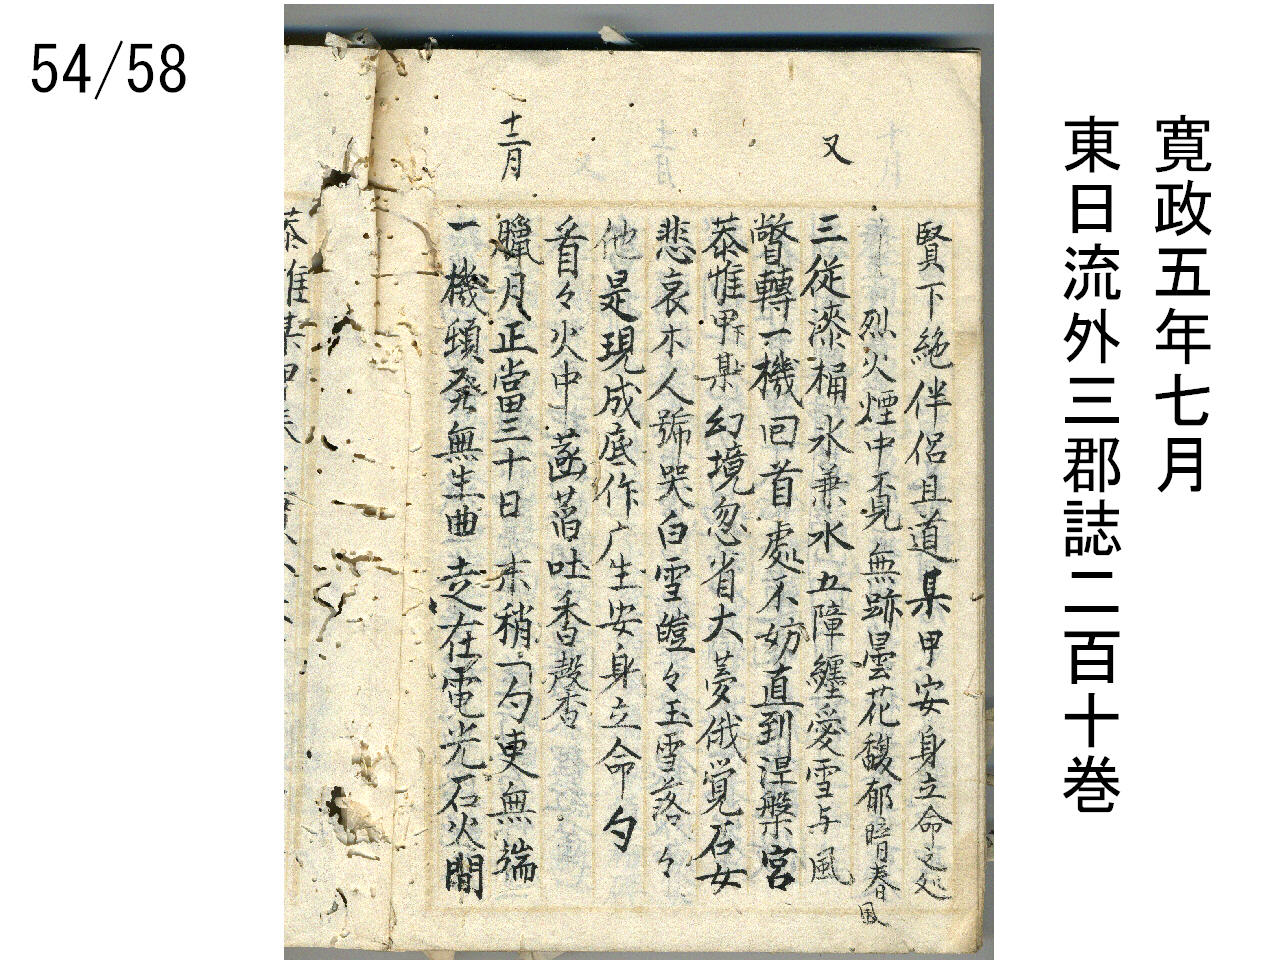 54/58
寛政五年七月
東日流外三郡誌二百十巻
又
十二月
賢下絶伴侶且道某甲安身立命之処
烈火煙中不見無跡曇花馥郁暗春風
三従漆桶氷兼水五障纏愛雪与風
瞥轉一機回首處不妨直到涅槃宮
恭惟 某 幻境忽省大夢俄覚石女
悲哀木人號哭白雪皚々玉雪落々
他是現成底作广生安身立命勺
看々火中菡萏吐香
臘月正當三十日末稍一勺更無端
一機頓発無生曲 走在電光石火間
恭惟某甲